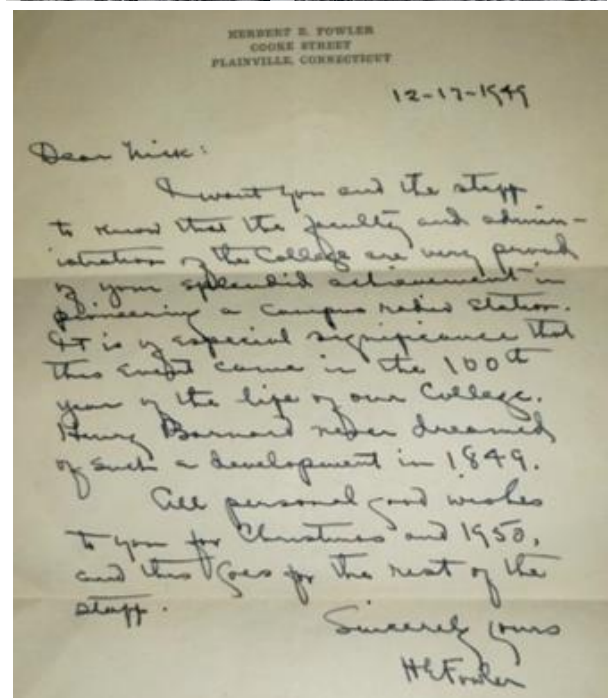 HERBERT E. FOWLER
COOKE STREET
PLAINVILLE, CONNECTICUT
12-17-1949
Dear Nick:
I want you and the staff
to know that the faculty and admin-
istration of the College are very proud
of your splendid achievement in
pioneering a campus radio station.
It is of especial significance that
this event came in the 100th
year of the life of our College.
Henry Barnard never dreamed
of such a development in 1849.
All personal good wishes
to you for Christmas and 1950,
and this goes for the rest of the
staff.
Sincerely yours
H E Fowler